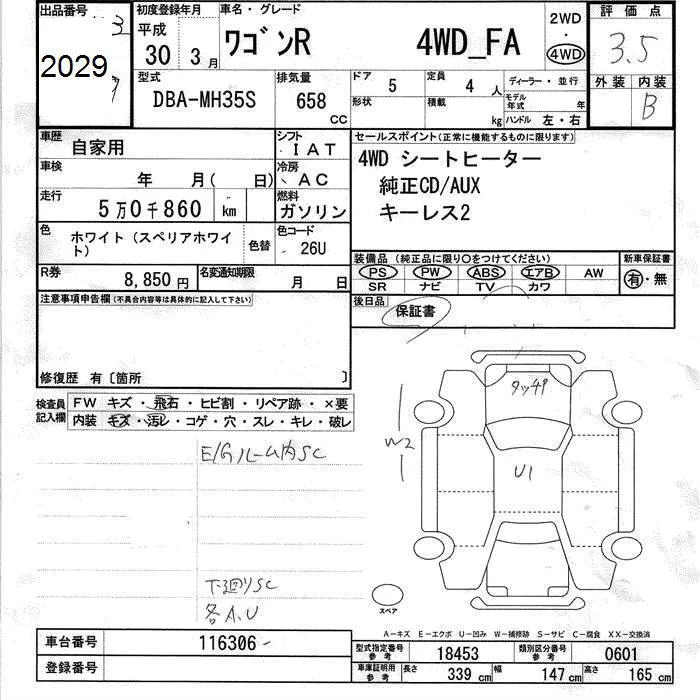 出品番号 初度登録年月 車名・グレード 2WD 評価点
3 平成 ワゴンR 4WD_FA ・ 3.5
2029 30 3月 4WD
型式 排気量 ドア 5 定員 4 人 ディーラー・並行 外装 内装
DBA-MH35S 658 CC 形状 積載 kg モデル年式 年 B
ハンドル 左・右
車歴 自家用 シフト IAT セールスポイント(正常に機能するものに限ります)
車検 年 月( 日) 冷房 AC 4WD シートヒーター
走行 5万0千860 km 燃料 ガソリン 純正CD/AUX
キーレス2
色 ホワイト(スペリアホワイト) 色替 色コード 26U
装備品(純正品に限り○をつけてください) 新車保証書
R券 8,850円 名変通知期限 月 日 PS PW ABS エアB AW 有・無
SR ナビ TV カワ
注意事項申告欄(不具合内容等は具体的に記入して下さい) 後日品 保証書
修復歴 有〔箇所 〕
検査員記入欄 FW キズ・飛石・ヒビ割・リペア跡・×要
内装 キズ・汚レ・コゲ・穴・スレ・キレ・破レ
タッチP
W2
E/Gルーム内SC
U1
下廻りSC
各A.U
スペア
A−キズ E−エクボ U−凹み W−補修跡 S−サビ C−腐食 XX−交換済
車台番号 116306 型式指定番号参考 18453 類別区分番号参考 0601
登録番号 車庫証明用参考 長さ 339cm 幅 147cm 高さ 165cm